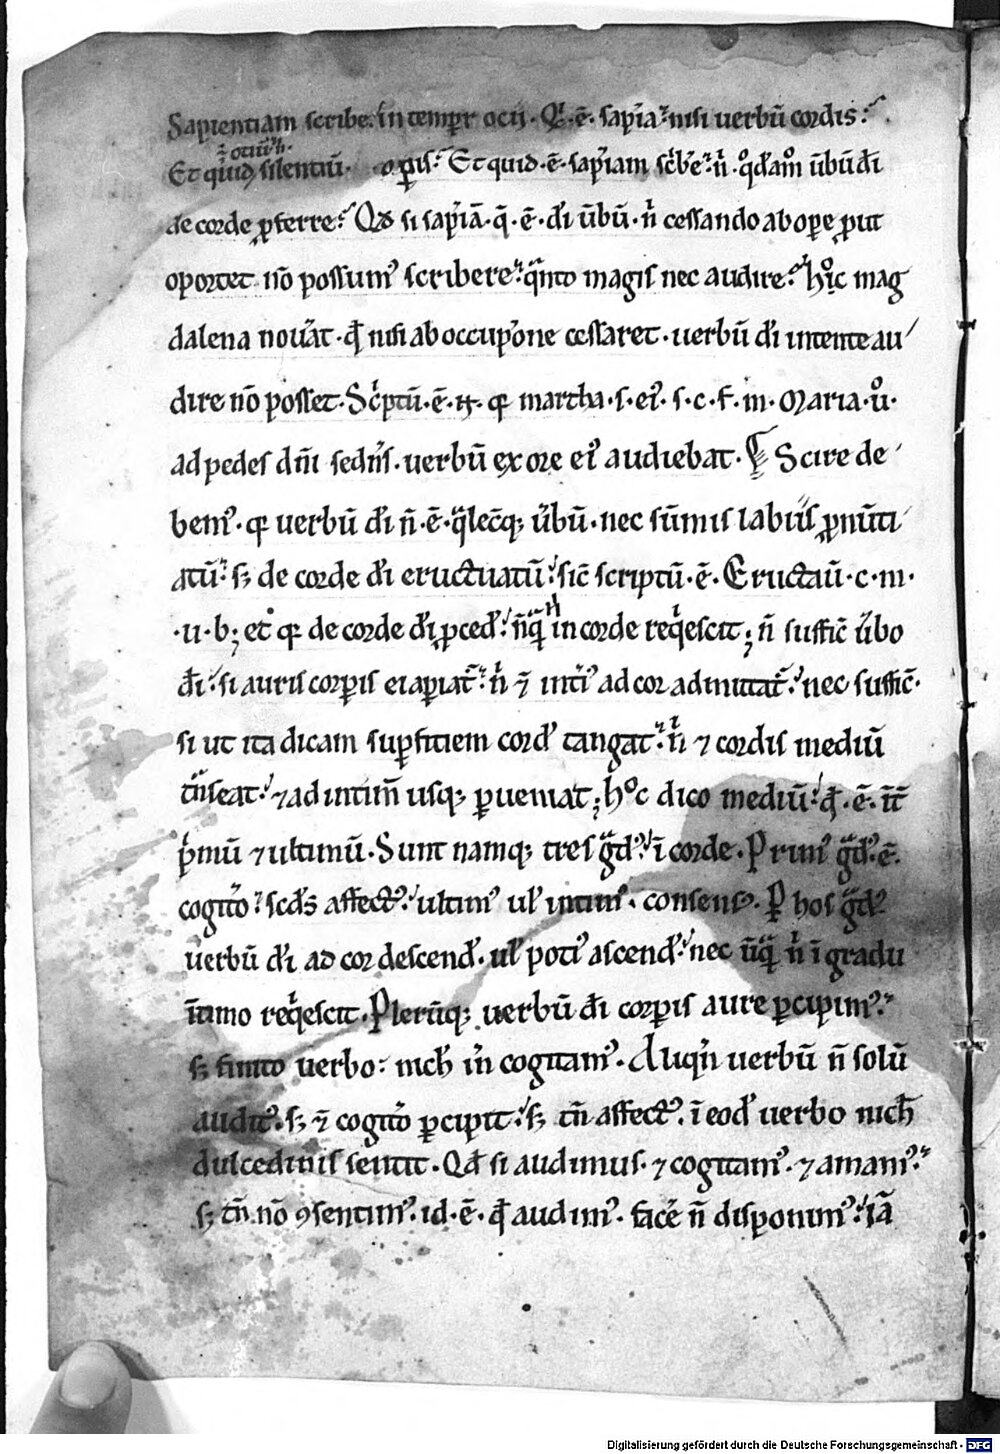 Sapientiam scribe. in tempr̄ ocij. Qͥ .ē. sap̄ia. nisi uerbū cordis.
⁊ ociū h̄.
Et quid silentiū. op̄is. Et quid .ē. sap̄iam sc̄be. n̄ . uƀū dī
de corde ꝓferre. Qd si sap̄iā . q̄ .ē. dī uƀū . n̄ cessando ab oꝑe ꝓut
oportet nō possumꝰ scribere. qͣnto magis nec audire. hͦc mag
dalena nouāt . qđ nisi ab occupꝰone cessaret . uerbū dī intente au
dire nō posset. Scͥptū .ē. qđ martha . s. eiꝰ . s. c. f. m. Maria . uͦ.
ad pedes dn̄i sedn̄s . uerbū ex ore eiꝰ audiebat . ¶ Scire de
bemꝰ . qđ uerbū dī n̄ .ē. qͣlecūqꝫ uƀū . nec sūmis labiis ꝓnūti
atū. sꝫ de corde dī eructuatū. sic̄ scriptū .ē. Eructau̅ . c. m.
.u. b; et qđ de corde dī ꝓced̄. in corde reqͥescit; n̄ suffic̄ uƀbo
dī. si auris corꝑis ei aꝑiat̄. n̄ ⁊ intiꝰ ad cor admittat̄. nec suffic̄.
si ut ita dicam suꝑfitiem cord̄ tangat. n̄ ⁊ cordis mediū
tn̄seat. ⁊ ad intimū usqꝫ ꝑueniat; hͦc dico mediū. qđ .ē. iī̄
pͥmū ⁊ ultimū. Sunt namqꝫ tres gͣdꝰ. ī corde. Primꝰ gͣdꝰ .ē.
cogitꝰo. scd̄s affectꝰ. ultimꝰ ul̄ intimꝰ . consensꝰ. Ꝑ hos gͣdꝰ
uerbū dī ad cor descend̄. ul̄ potiꝰ ascend̄. nec ūqͣ n̄ ī gradu
ītimo reqͥescit. Plerūqꝫ uerbū dī corꝑis aure ꝑcipimꝰ.
sꝫ finito uerbo. nich̄ in̄ cogitamꝰ. Aliqn̄ uerbū n̄ solū
auditꝰ. sꝫ ⁊ cogitꝰo ꝑcipit. sꝫ tn̄ affectꝰ. ī eod̄ uerbo nich̄
dulcedinis sentit. Qđ si audimus. ⁊ cogitamꝰ. ⁊ amamꝰ.
sꝫ tn̄ nō ꝯsentimꝰ. id .ē. qđ audimꝰ. face̅ n̄ disponimꝰ. iā
Digitalisierung gefördert durch die Deutsche Forschungsgemeinschaft - DFG